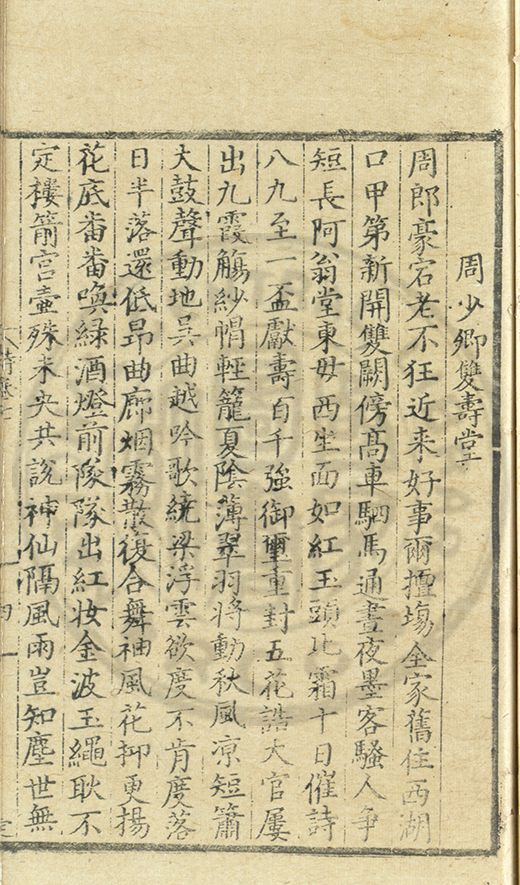 周少卿雙壽堂
周郎豪宕老不狂近来好事爾擅塲全家舊住西湖
口甲第新開雙闕傍髙車駟馬通晝夜墨客騷人争
短長阿翁堂東毋西坐面如紅玉頭比霜十日催詩
八九至一盃獻壽百千強御璽重封五花誥大官屢
出九霞觴紗㡌輕籠夏陰薄翠羽將動秋風凉短簫
大鼓聲動地吴曲越吟歌繞梁浮雲欲度不肯度落
日半落還低昂曲廊烟霧散復合舞袖風花抑更揚
花底番番喚緑酒燈前隊隊出紅妆金波玉繩耿不
定樓箭宫壷殊未央共説神仙隔風雨豈知塵世無